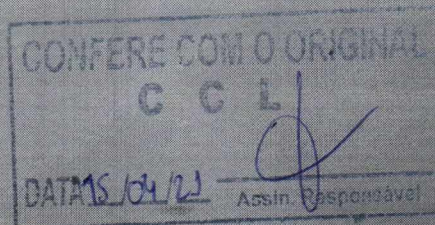 CONFERE COM O ORIGINAL
C C L
DATA 15/04/21
Assin. Responsável